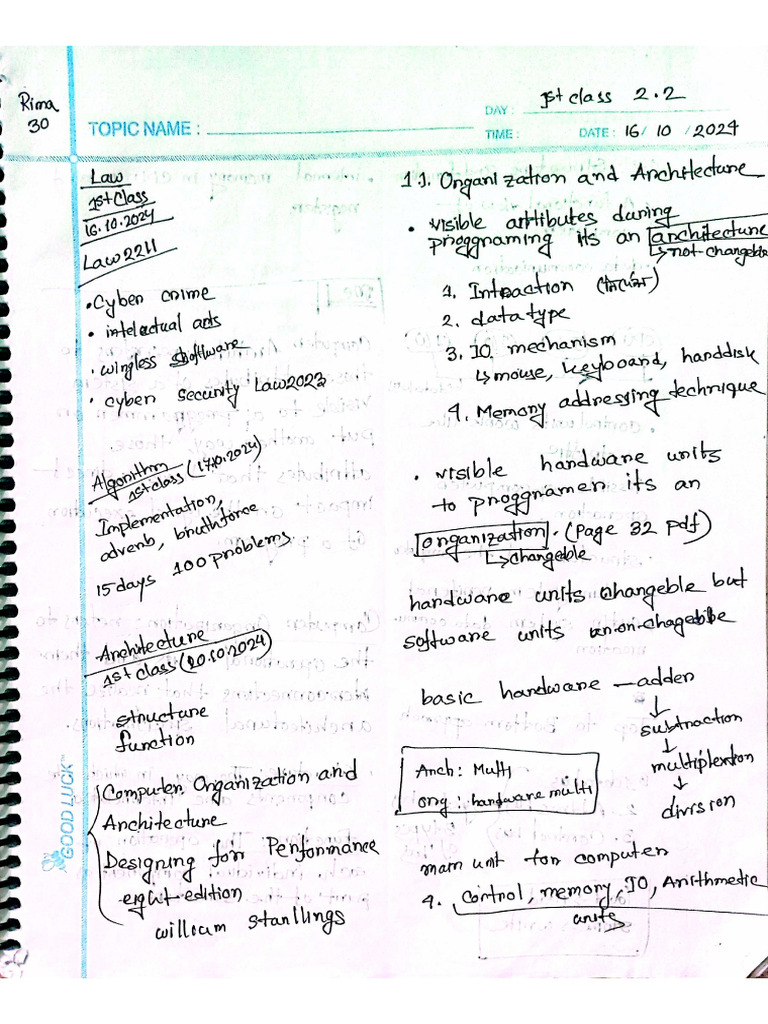 Rima
30
TOPIC NAME :
DAY :
1st class 2.2
TIME :
DATE : 16/ 10 / 2024
Law
1st Class
16.10.2024
Law 2211
• Cyber crime
• intelectual arts
• wingless software
• cyber security Law 2023
Algorithm
1st class (17.10.2024)
Implementation,
adverb, bruthforce
15 days 100 problems
Architecture
1st class (20.10.2024)
structure
function
Computer Organization and
Architecture
Designing for Performance
eight edition
william stanllings
GOOD LUCK™
1.1. Organization and Architecture
• visible attributes during
proggraming its an architecture
↳ not changeble
1. Intraction
2. data type
3. IO mechanism
↳ mouse, keyboard, harddisk
4. Memory addressing technique
• visible hardware units
to proggramer its an
organization. (page 32 pdf)
↳ changeble
hardware units changeble but
software units
basic hardware — adder
↓
subtraction
↓
multiplextion
↓
division
Arch : Multi
org : hardware multi
main unit for computer
4. Control, memory, IO, Aristhmetic
units